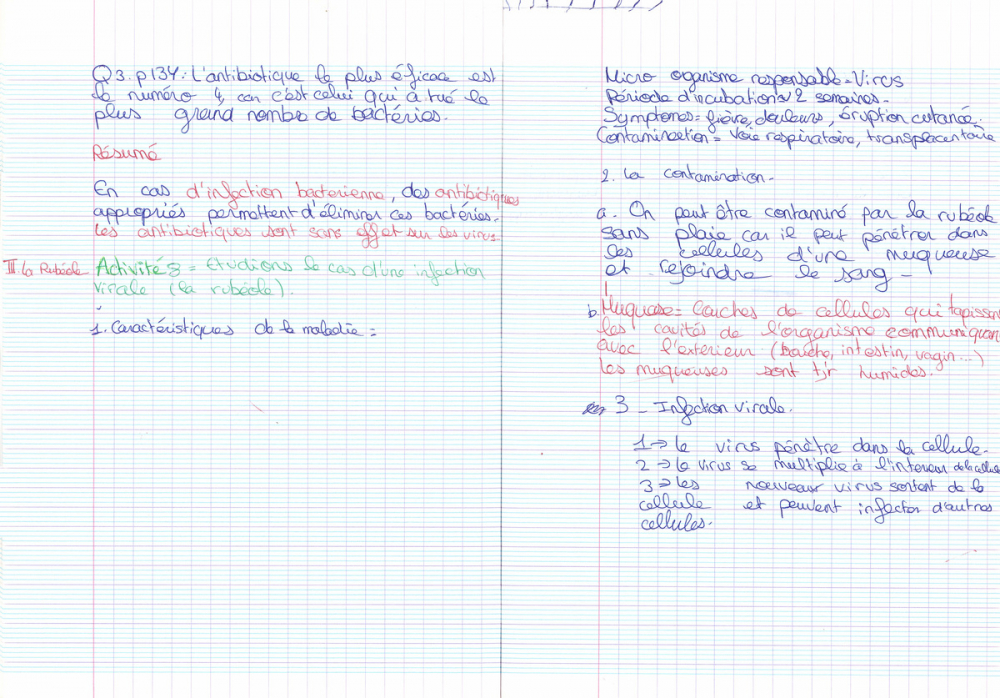 Q3.p134: L'antibiotique le plus éficace est
le numéro 4, car c'est celui qui à tué le
plus grand nombre de bactéries.
Résumé
En cas d'infection bacterienne, des antibiotiques
appropriés permettent d'éliminer ces bactéries.
Les antibiotiques sont sans effet sur les virus
III La Rubéole
Activité 8 = Etudions le cas d'une infection
virale (la rubéole).
1. Caractéristiques de la maladie =
Micro organisme responsable = Virus
Période d'incubation ~ 2 semaines.
Symptomes = fièvre, douleurs, éruption cutanée.
Contamination = Voie respiratoire, transplacentaire
2. La contamination.
a. On peut être contaminé par la rubéole
sans plaie car il peut pénétrer dans
les cellules d'une muqueuse
et rejoindre le sang.
b. Muqueuse = Couches de cellules qui tapissent
les cavités de l'organisme communiquant
avec l'extérieur (bouche, intestin, vagin...)
Les muqueuses sont tjr humides.
3 - Infection virale.
1 → Le virus pénètre dans la cellule.
2 → Le virus se multiplie à l'interieur de la cellule
3 → Les nouveaux virus sortent de la
cellule et peuvent infecter d'autres
cellules.